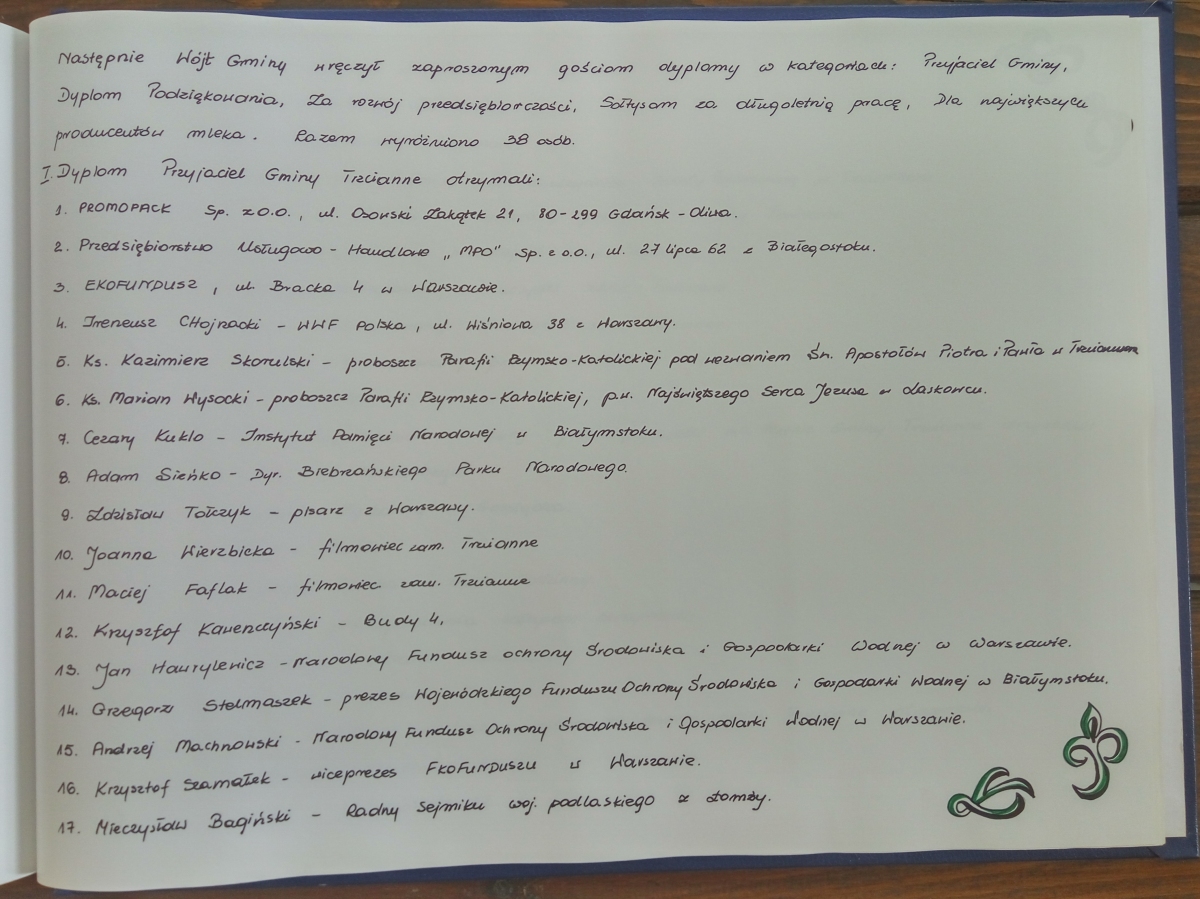 Następnie Wójt Gminy wręczył zaproszonym gościom dyplomy w kategoriach: Przyjaciel Gminy,
Dyplom Podziękowania, Za rozwój przedsiębiorczości, Sołtysom za długoletnią pracę, Dla największych
producentów mleka. Razem wyróżniono 38 osób.
I. Dyplom Przyjaciel Gminy Trzcianne otrzymali:
1. PROMOPACK Sp. z o.o., ul. Osowski Zakątek 21, 80-299 Gdańsk - Oliwa.
2. Przedsiębiorstwo Usługowo - Handlowe „MPO" Sp. z o.o., ul. 27 lipca 62 z Białegostoku.
3. EKOFUNDUSZ, ul. Bracka 4 w Warszawie.
4. Ireneusz CHojnacki - WWF Polska, ul. Wiśniowa 38 z Warszawy.
5. Ks. Kazimierz Skorulski - proboszcz Parafii Rzymsko-Katolickiej pod wezwaniem Św. Apostołów Piotra i Pawła w Trzciannem
6. Ks. Marian Wysocki - proboszcz Parafii Rzymsko-Katolickiej, p.w. Najświętszego Serca Jezusa w Laskowcu.
7. Cezary Kuklo - Instytut Pamięci Narodowej w Białymstoku.
8. Adam Sieńko - Dyr. Biebrzańskiego Parku Narodowego.
9. Zdzisław Tołczyk - pisarz z Warszawy.
10. Joanna Wierzbicka - filmowiec zam. Trzcianne
11. Maciej Faflak - filmowiec zam. Trzcianne
12. Krzysztof Kawenczyński - Budy 4.
13. Jan Hawrylewicz - Narodowy Fundusz ochrony Środowiska i Gospodarki Wodnej w Warszawie.
14. Grzegorz Stelmaszek - prezes Wojewódzkiego Funduszu Ochrony Środowiska i Gospodarki Wodnej w Białymstoku.
15. Andrzej Machnowski - Narodowy Fundusz Ochrony Środowiska i Gospodarki Wodnej w Warszawie.
16. Krzysztof Szamałek - wiceprezes EKOFUNDUSZU w Warszawie.
17. Mieczysław Bagiński - Radny Sejmiku woj. podlaskiego z Łomży.